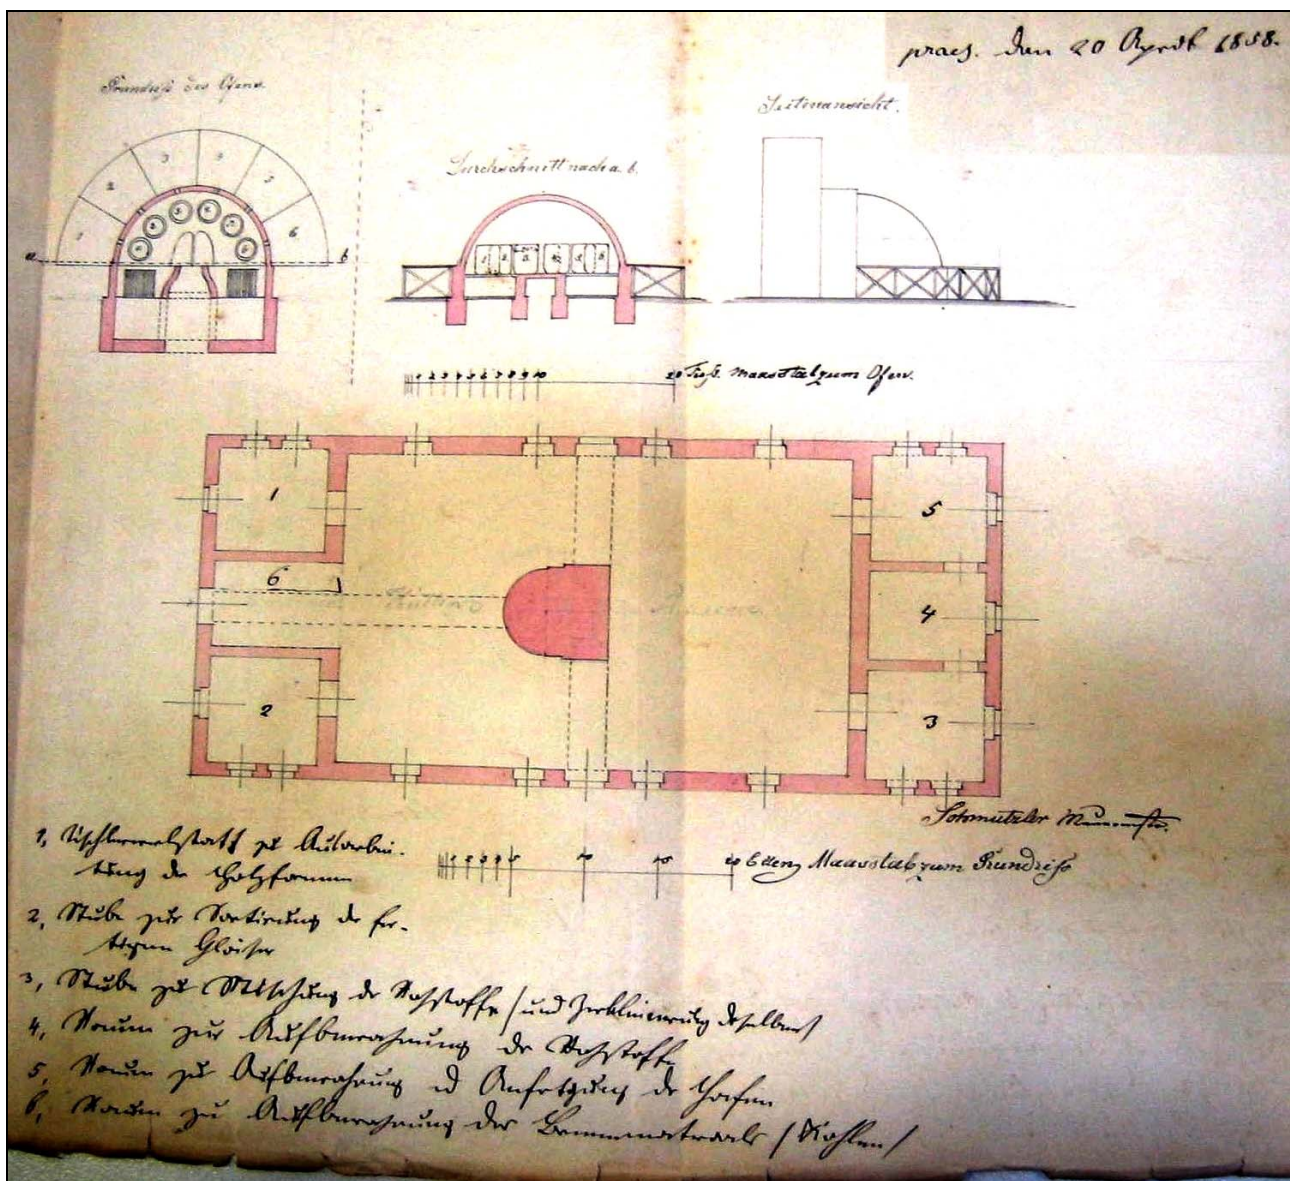 praes. den 20 April 1858.
Grundriß des Ofens.
Seitenansicht.
Durchschnitt nach a. b.
1 2 3 3 6
a b
1 2 3 4 5 6 7 8 9 10 20 Fuß. Maasstab zum Ofen.
1 5
6 4
2 3
Schmutzler Maurermstr.
5 10 15 20 Ellen Maasstab zum Grundriß
1, Tischlerwerkstatt zu Ausarbei-
tung der Holzformen
2, Stube zur Sortirung der fer-
tigen Gläser
3, Stube zur Mischung der Rohstoffe / und Zerkleinerung deselben /
4, Raum zur Aufbewahrung der Rohstoffe
5, Raum zur Aufbewahrung und Anfertigung der Hafen
6, Raum zu Aufbewahrung des Brennmaterials / Kohlen /